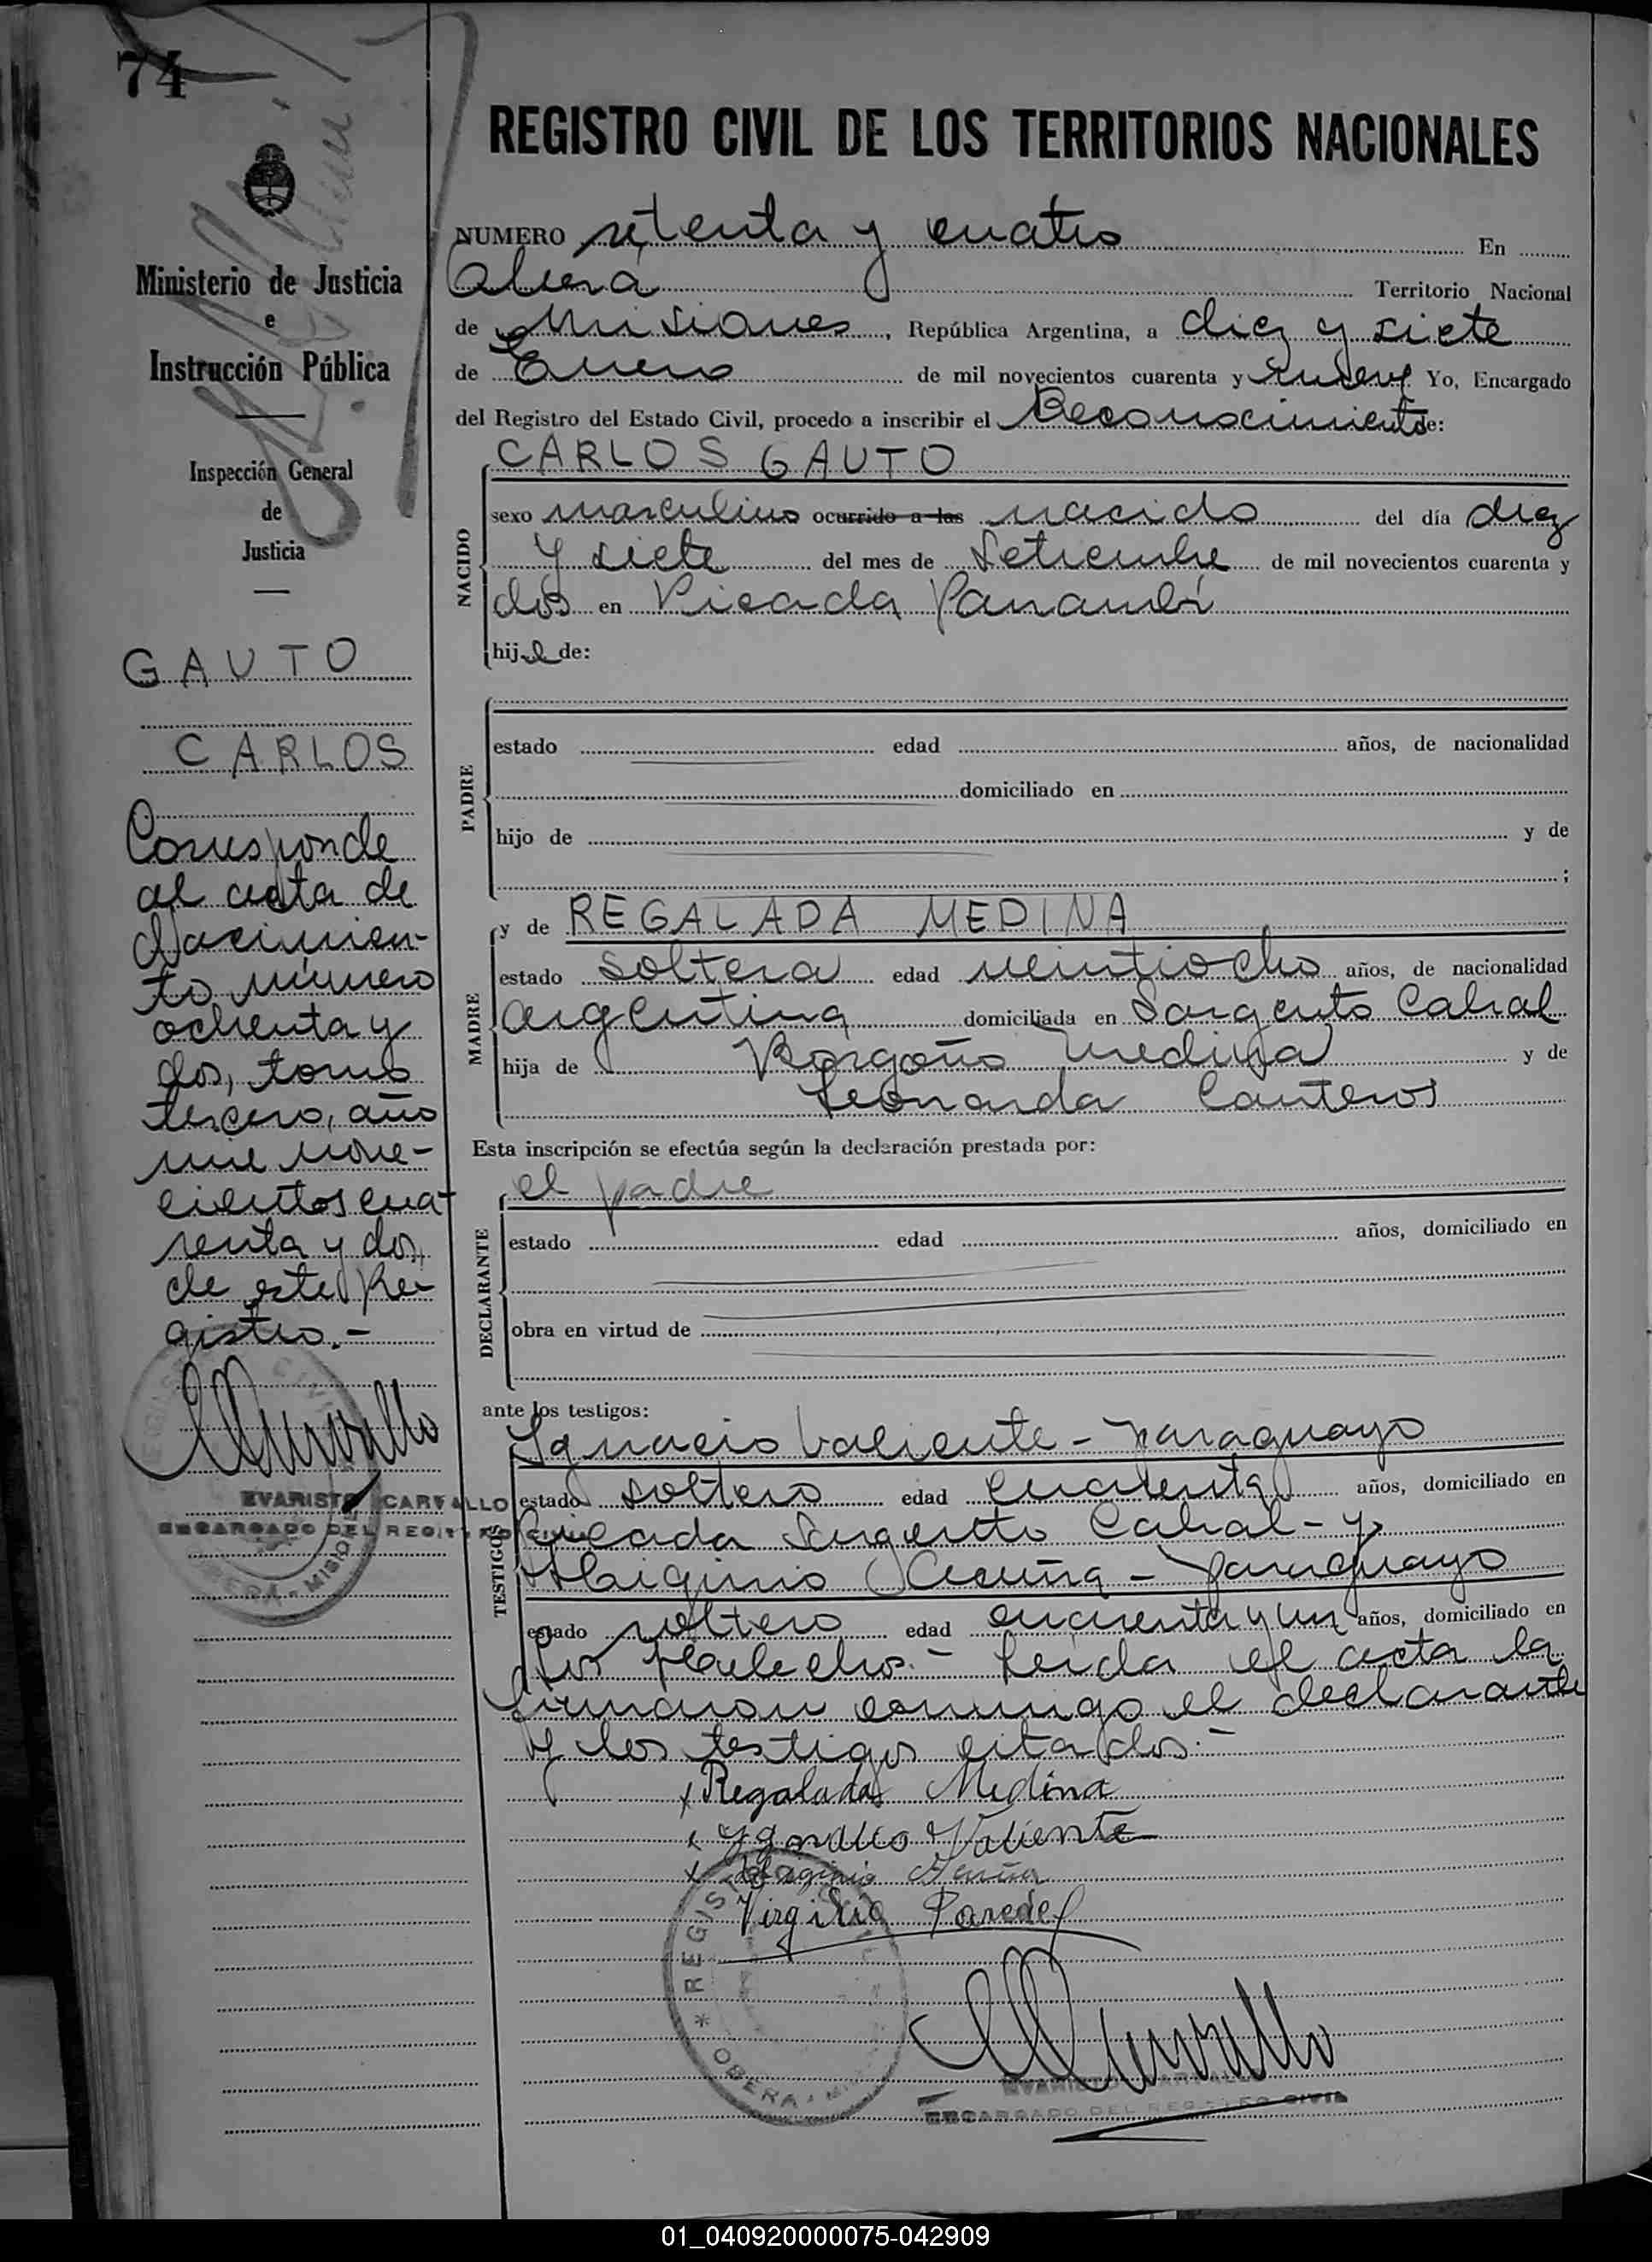 74
REGISTRO CIVIL DE LOS TERRITORIOS NACIONALES
Ministerio de Justicia
e
Instrucción Pública
Inspección General
de
Justicia
GAUTO
CARLOS
Corresponde
al acta de
Nacimien-
to número
ochenta y
dos, tomo
tercero, año
mil nove-
cientos cua-
renta y dos,
de este Re-
gistro.-
EVARISTO CARVALLO
ENCARGADO DEL REGISTRO CIVIL
NUMERO setenta y cuatro En
Oberá Territorio Nacional
de Misiones, República Argentina, a diez y siete
de Enero de mil novecientos cuarenta y nueve Yo, Encargado
del Registro del Estado Civil, procedo a inscribir el Reconocimiento de:
CARLOS GAUTO
NACIDO
sexo masculino ocurrido a las nacido del día diez
y siete del mes de Setiembre de mil novecientos cuarenta y
dos en Picada Panambí
hijo de:
PADRE
estado edad años, de nacionalidad
domiciliado en
hijo de y de
;
MADRE
y de REGALADA MEDINA
estado soltera edad veintiocho años, de nacionalidad
argentina domiciliada en Sargento Cabral
hija de Medina y de
Leonarda Canteros
Esta inscripción se efectúa según la declaración prestada por:
DECLARANTE
el padre
estado edad años, domiciliado en
obra en virtud de
ante los testigos:
TESTIGOS
Ignacio Valiente - paraguayo
estado soltero edad cuarenta años, domiciliado en
Picada Sargento Cabral - y
Higinio Acuña - paraguayo
estado soltero edad cuarenta y un años, domiciliado en
Los Helechos.- Leída el acta la
firmaron conmigo el declarante
y los testigos citados.-
x Regalada Medina
x Ygnacio Valiente
x Higinio Acuña
Virgilio Paredes
REGIS
OBERA
EVARISTO CARVALLO
ENCARGADO DEL REGISTRO CIVIL
01_040920000075-042909